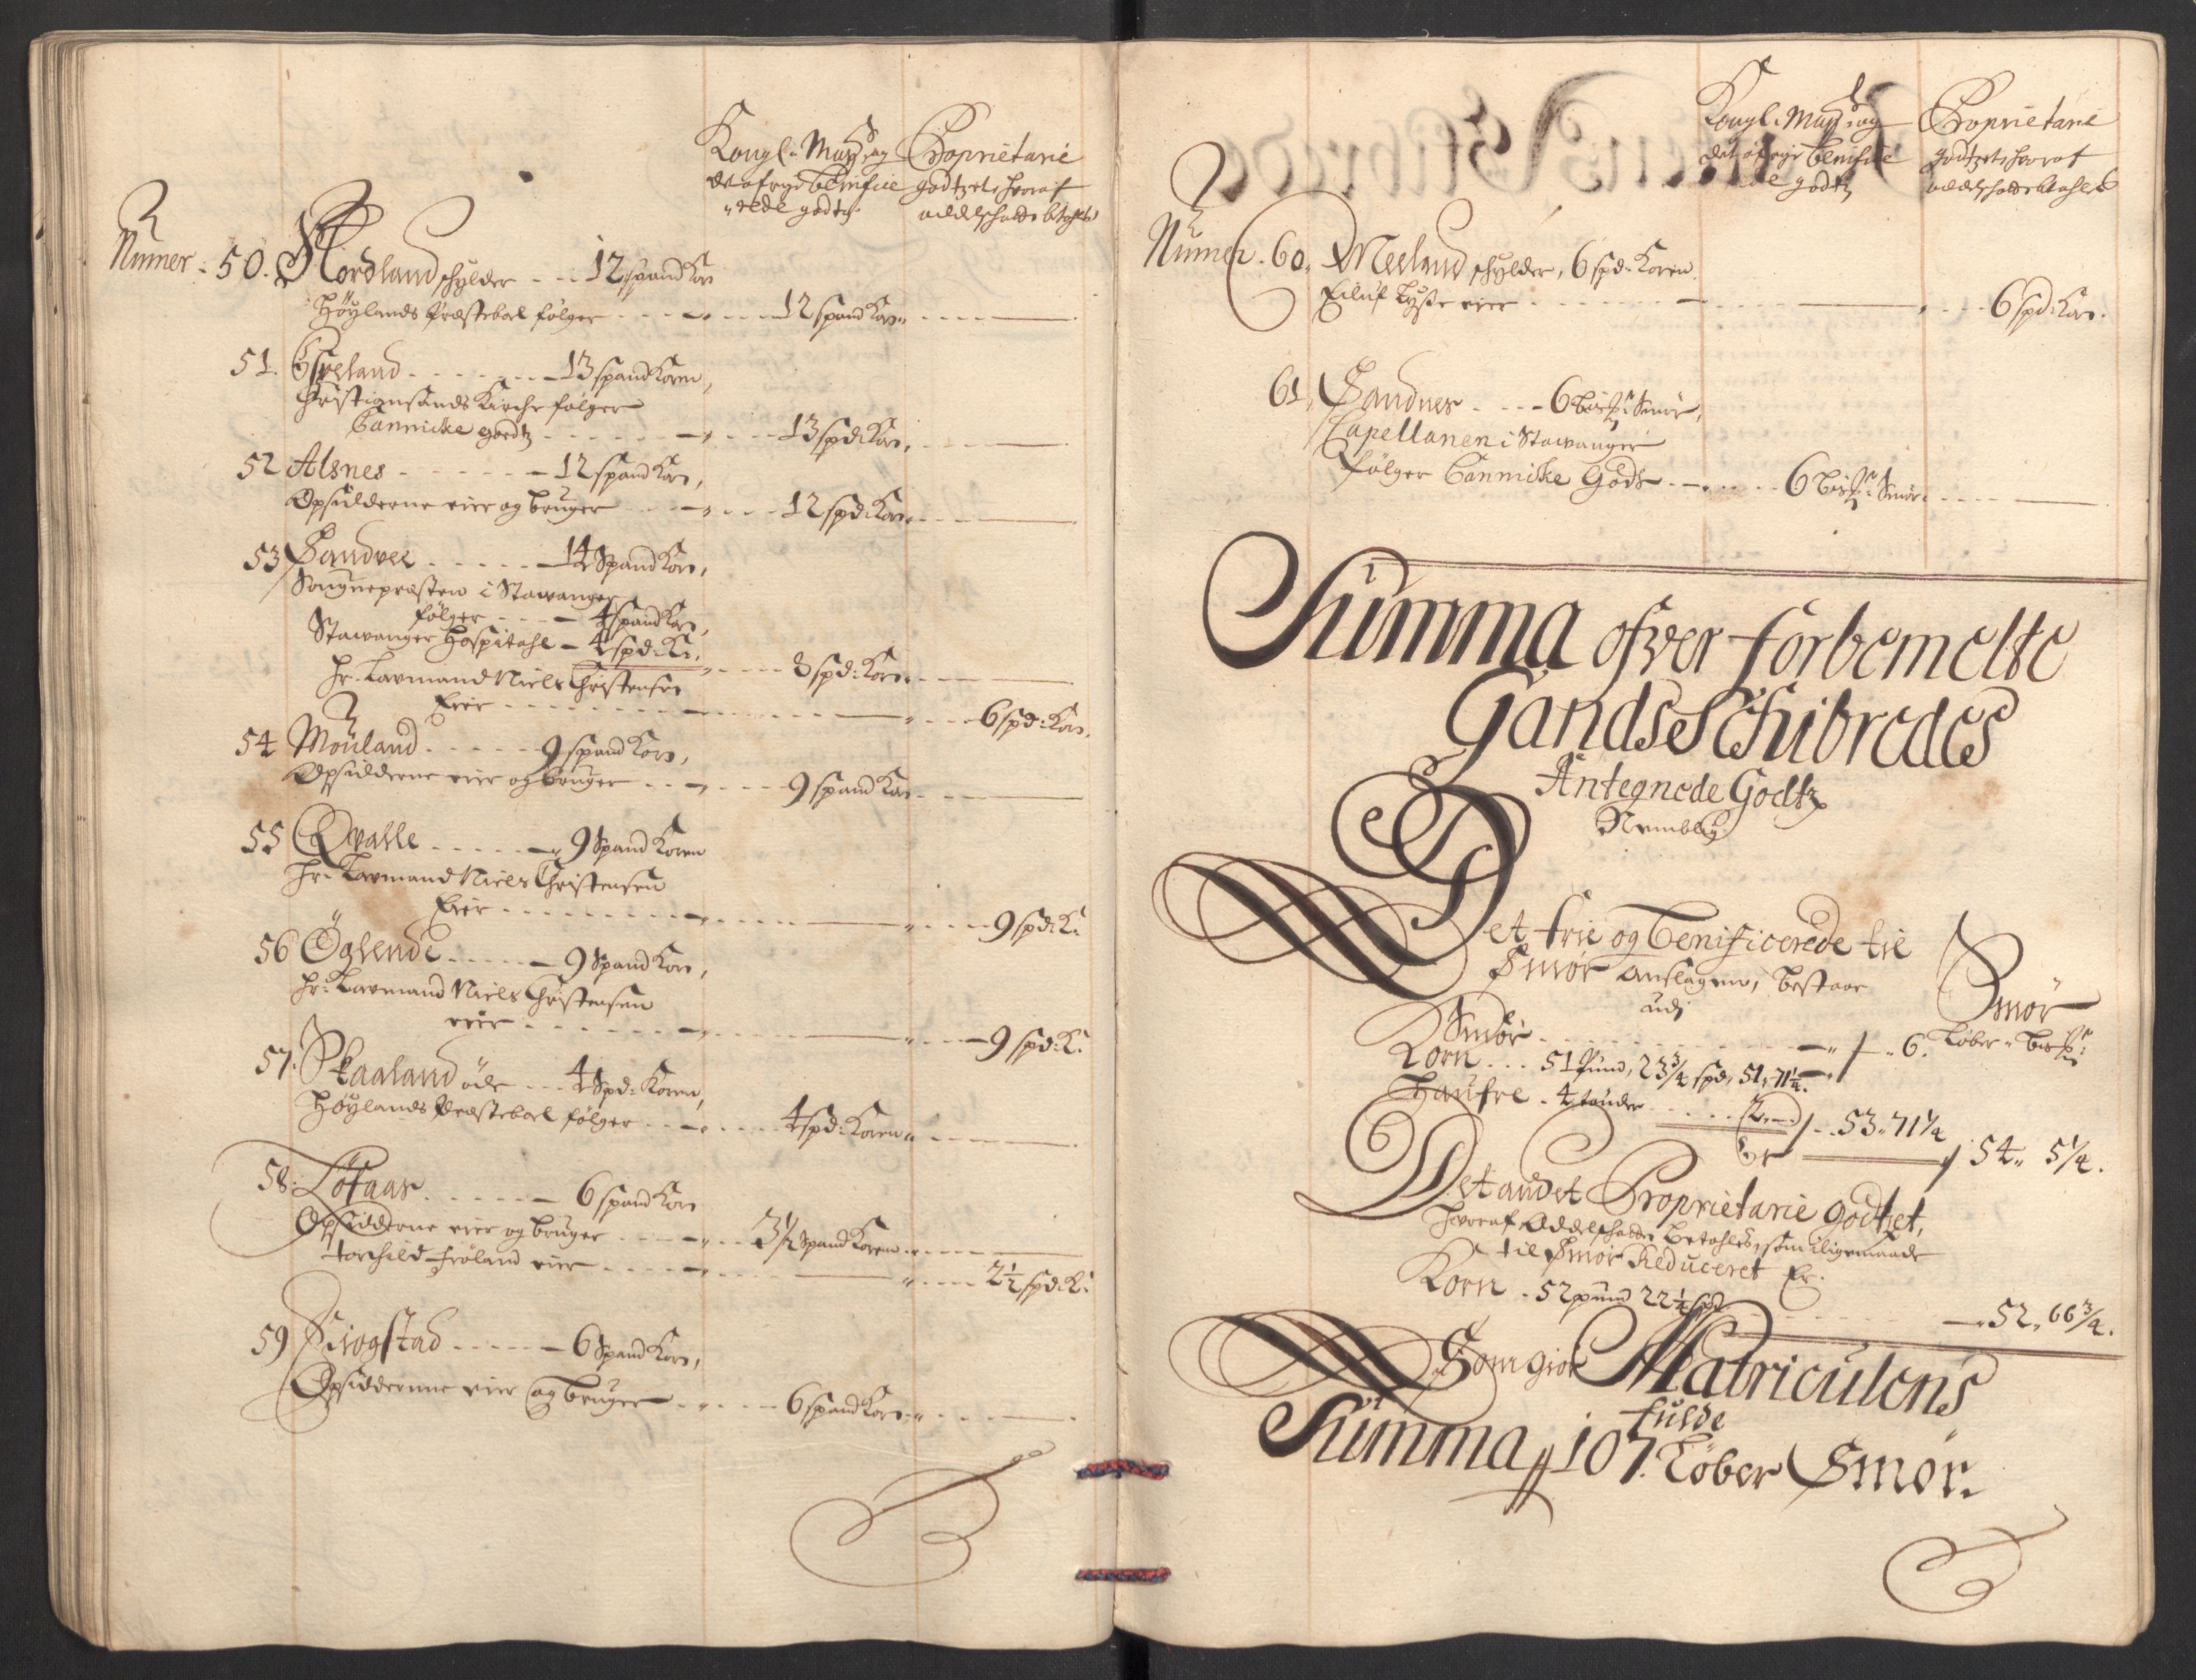 Kongl: Mayts: og
det øfrige benifice
rede godtz
Proprietarie
godtzet, hvoraf
oddelskatt betahles
Numer: 50. Hordland schylder - - 12 spand Korn
Høylands Præstebol følger - - - 12 spand Korn
51. Espeland - - - 13 spand Koren,
Christiansands Kirche følger
Cannicke goedtz - - - 13 spd: Korn,
52 Alsnes - - - 12 spand Korn,
Opsidderne eier og bruger - - - 12 spd: Korn
53 Sandvee - - - 14 Spand Korn,
Sougnepræsten i Stawanger
følger - - - 4 spand Korn,
Stawanger Hospitahl - 4 spd: K:,
- - - 8 spd: Korn
Hr: Lavmand Niels Christensen
Eier - - - 6 spd: Korn.
54 Mouland - - - 9 spand Korn,
Opsidderne eier og bruger - - - 9 spand Korn
55 Qvalle - - - 9 Spand Koren
Hr: Lavmand Niels Christensen
Eier - - - 9 spd: K:
56 Øglende - - - 9 Spand Korn,
Hr: Lavmand Niels Christensen
eier - - - 9 spd: K:
57. Skaaland øde - - - 4 Spd: Koren,
Høylands Præstebol følger - - - 4 spd: Koren
58. Lotaas - - - 6 spand Korn
Opsidderne eier og bruger - - - 3½ Spand Koren
torchild Frøland eier - - - 2½ spd: K:
59 Skiogstad - - - 6 Spand Korn,
Opsidderne eier og bruger - - - 6 spand Korn
Kongl: Mayts: og
det øfrige benifice
rede godtz
Proprietarie
godtzet, hvoraf
oddelskatt betahles
Numer. 60, Meeland schylder, 6 spd: Koren
Eiluf Tysse eier - - - 6 spd: Korn.
61, Sandnes - - - 6 bispr: Smør,
Capellanen i Stawanger
følger Cannicke Gods - - - 6 bispr: Smør
Summa ofver forbemelte
Gandse Schibredes
Antegnede Godtz
Nemblig:
Det frie og Benificerede til
Smør anslagen, bestaar
udj
Smør
Smør - - - 6. Løber - bispr:
Korn - - - 51 Pund, 23¾ spd, 51, 71¼.
Haufre - 4 tønder - - - 2, -
- - 53. 71¼
Er 54, 5¼.
Det andet Proprietarie godtzet,
hvoraf Oddelschatt betahles, som iligemaade
til Smør Reduceret Er.
Korn - 52 pund 22¼ spd - - - 52, 66¾.
Som giør Matriculens
fulde
Summa 107. Løber Smør.